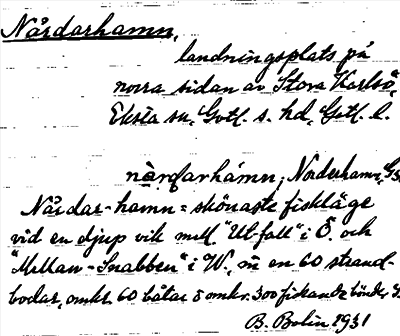 Nårdarhamn,
landningsplats på
norra sidan av Stora Karlsö,
Eksta sn, Gotl. s. hd, Gotl. l.
nàrdarhámn; Norderhamn,
Nårdar-hamn = skönaste fiskläge
vid en djup vik mell. "Ut-fall" i Ö. och
"Mellan-Snabben" i W., m en 60 strand-
bodar, omkr. 60 båtar o omkr. 300 fiskande bönder,
B. Bolin 1931